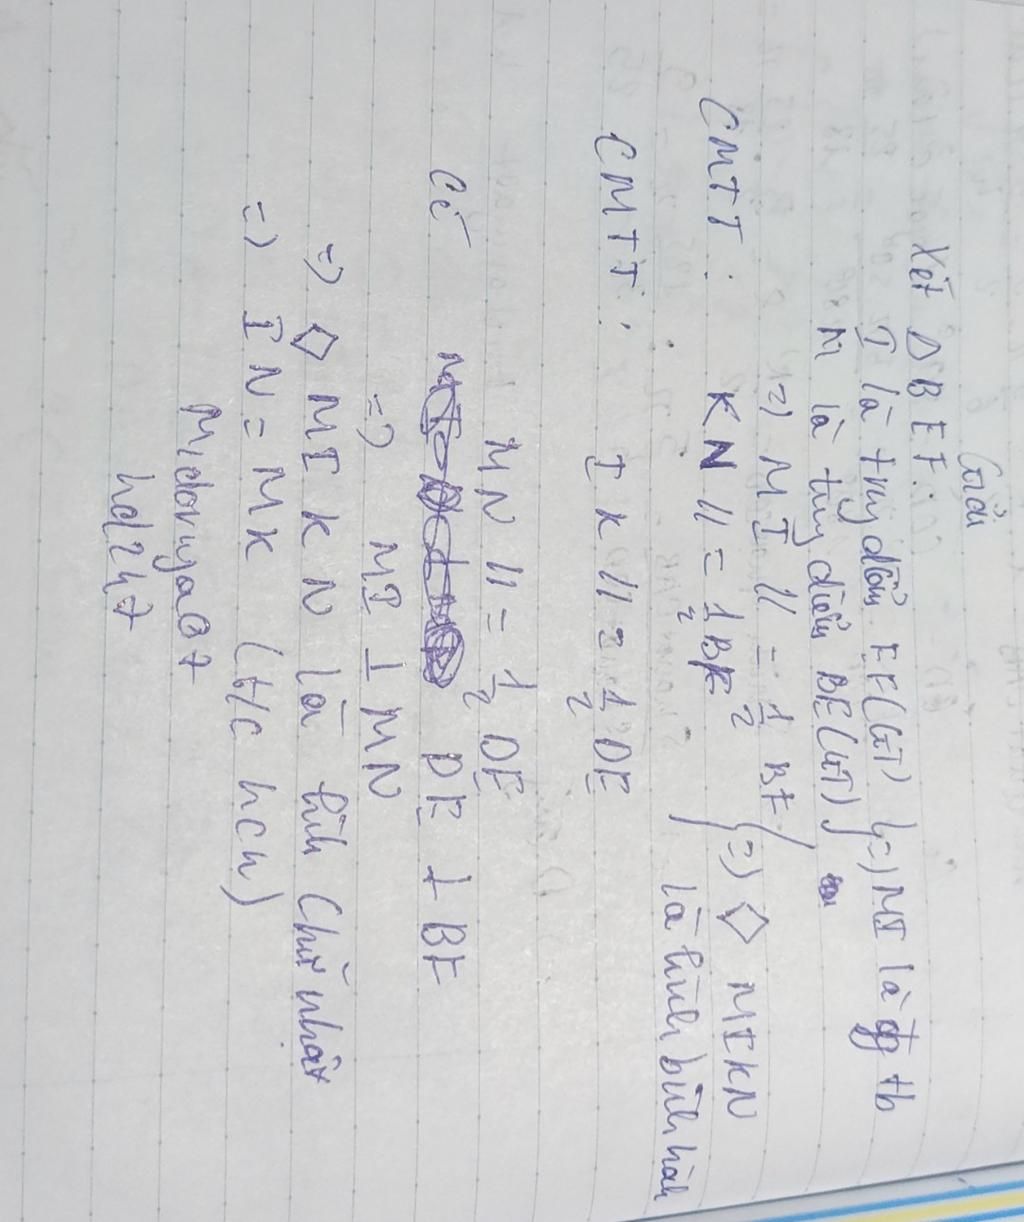 Giải
Xét Δ BEF:
I là trung điểm EF(GT)
M là trung điểm BE(GT) } => MI là đg tb
=> MI // = 1/2 BF
CMTT: KN // = 1/2 BF
=> ◇ MIKN
là hình bình hành
CMTT: IK // = 1/2 DE
MN // = 1/2 DE
Có DE ⊥ BF
=> MI ⊥ MN
=> ◇ MIKN là hình chữ nhật
=> IN = MK (t/c hcn)
hd247